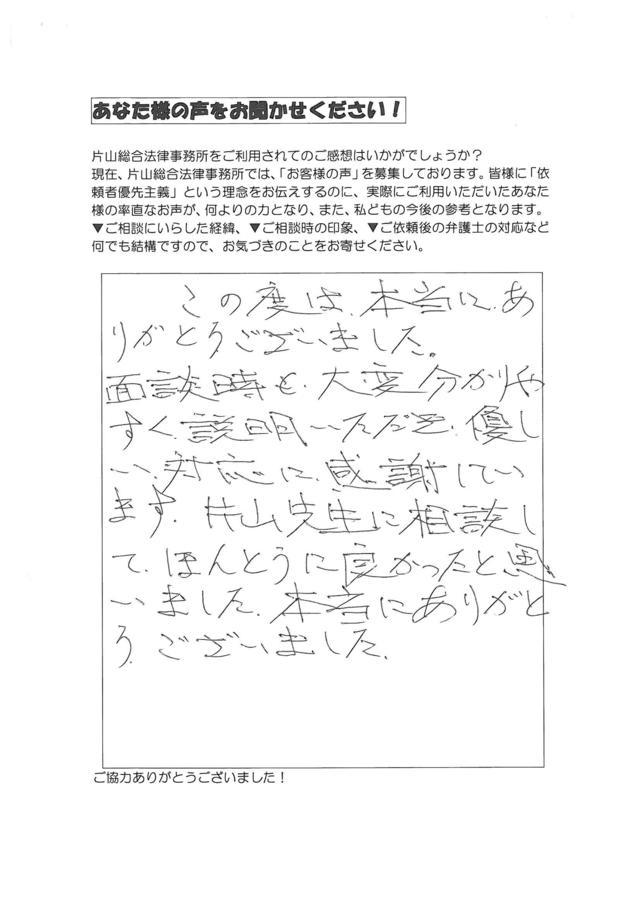 あなた様の声をお聞かせください！
片山総合法律事務所をご利用されてのご感想はいかがでしょうか？
現在、片山総合法律事務所では、「お客様の声」を募集しております。皆様に「依
頼者優先主義」という理念をお伝えするのに、実際にご利用いただいたあなた
様の率直なお声が、何よりの力となり、また、私どもの今後の参考となります。
▼ご相談にいらした経緯、▼ご相談時の印象、▼ご依頼後の弁護士の対応など
何でも結構ですので、お気づきのことをお寄せください。
この度は、本当に、あ
りがとうございました。
面談時も、大変分かりや
すく、説明いただき、優し
い、対応に、感謝してい
ます。片山先生に相談し
て、ほんとうに良かったと思
いました。本当にありがと
うございました。
ご協力ありがとうございました！